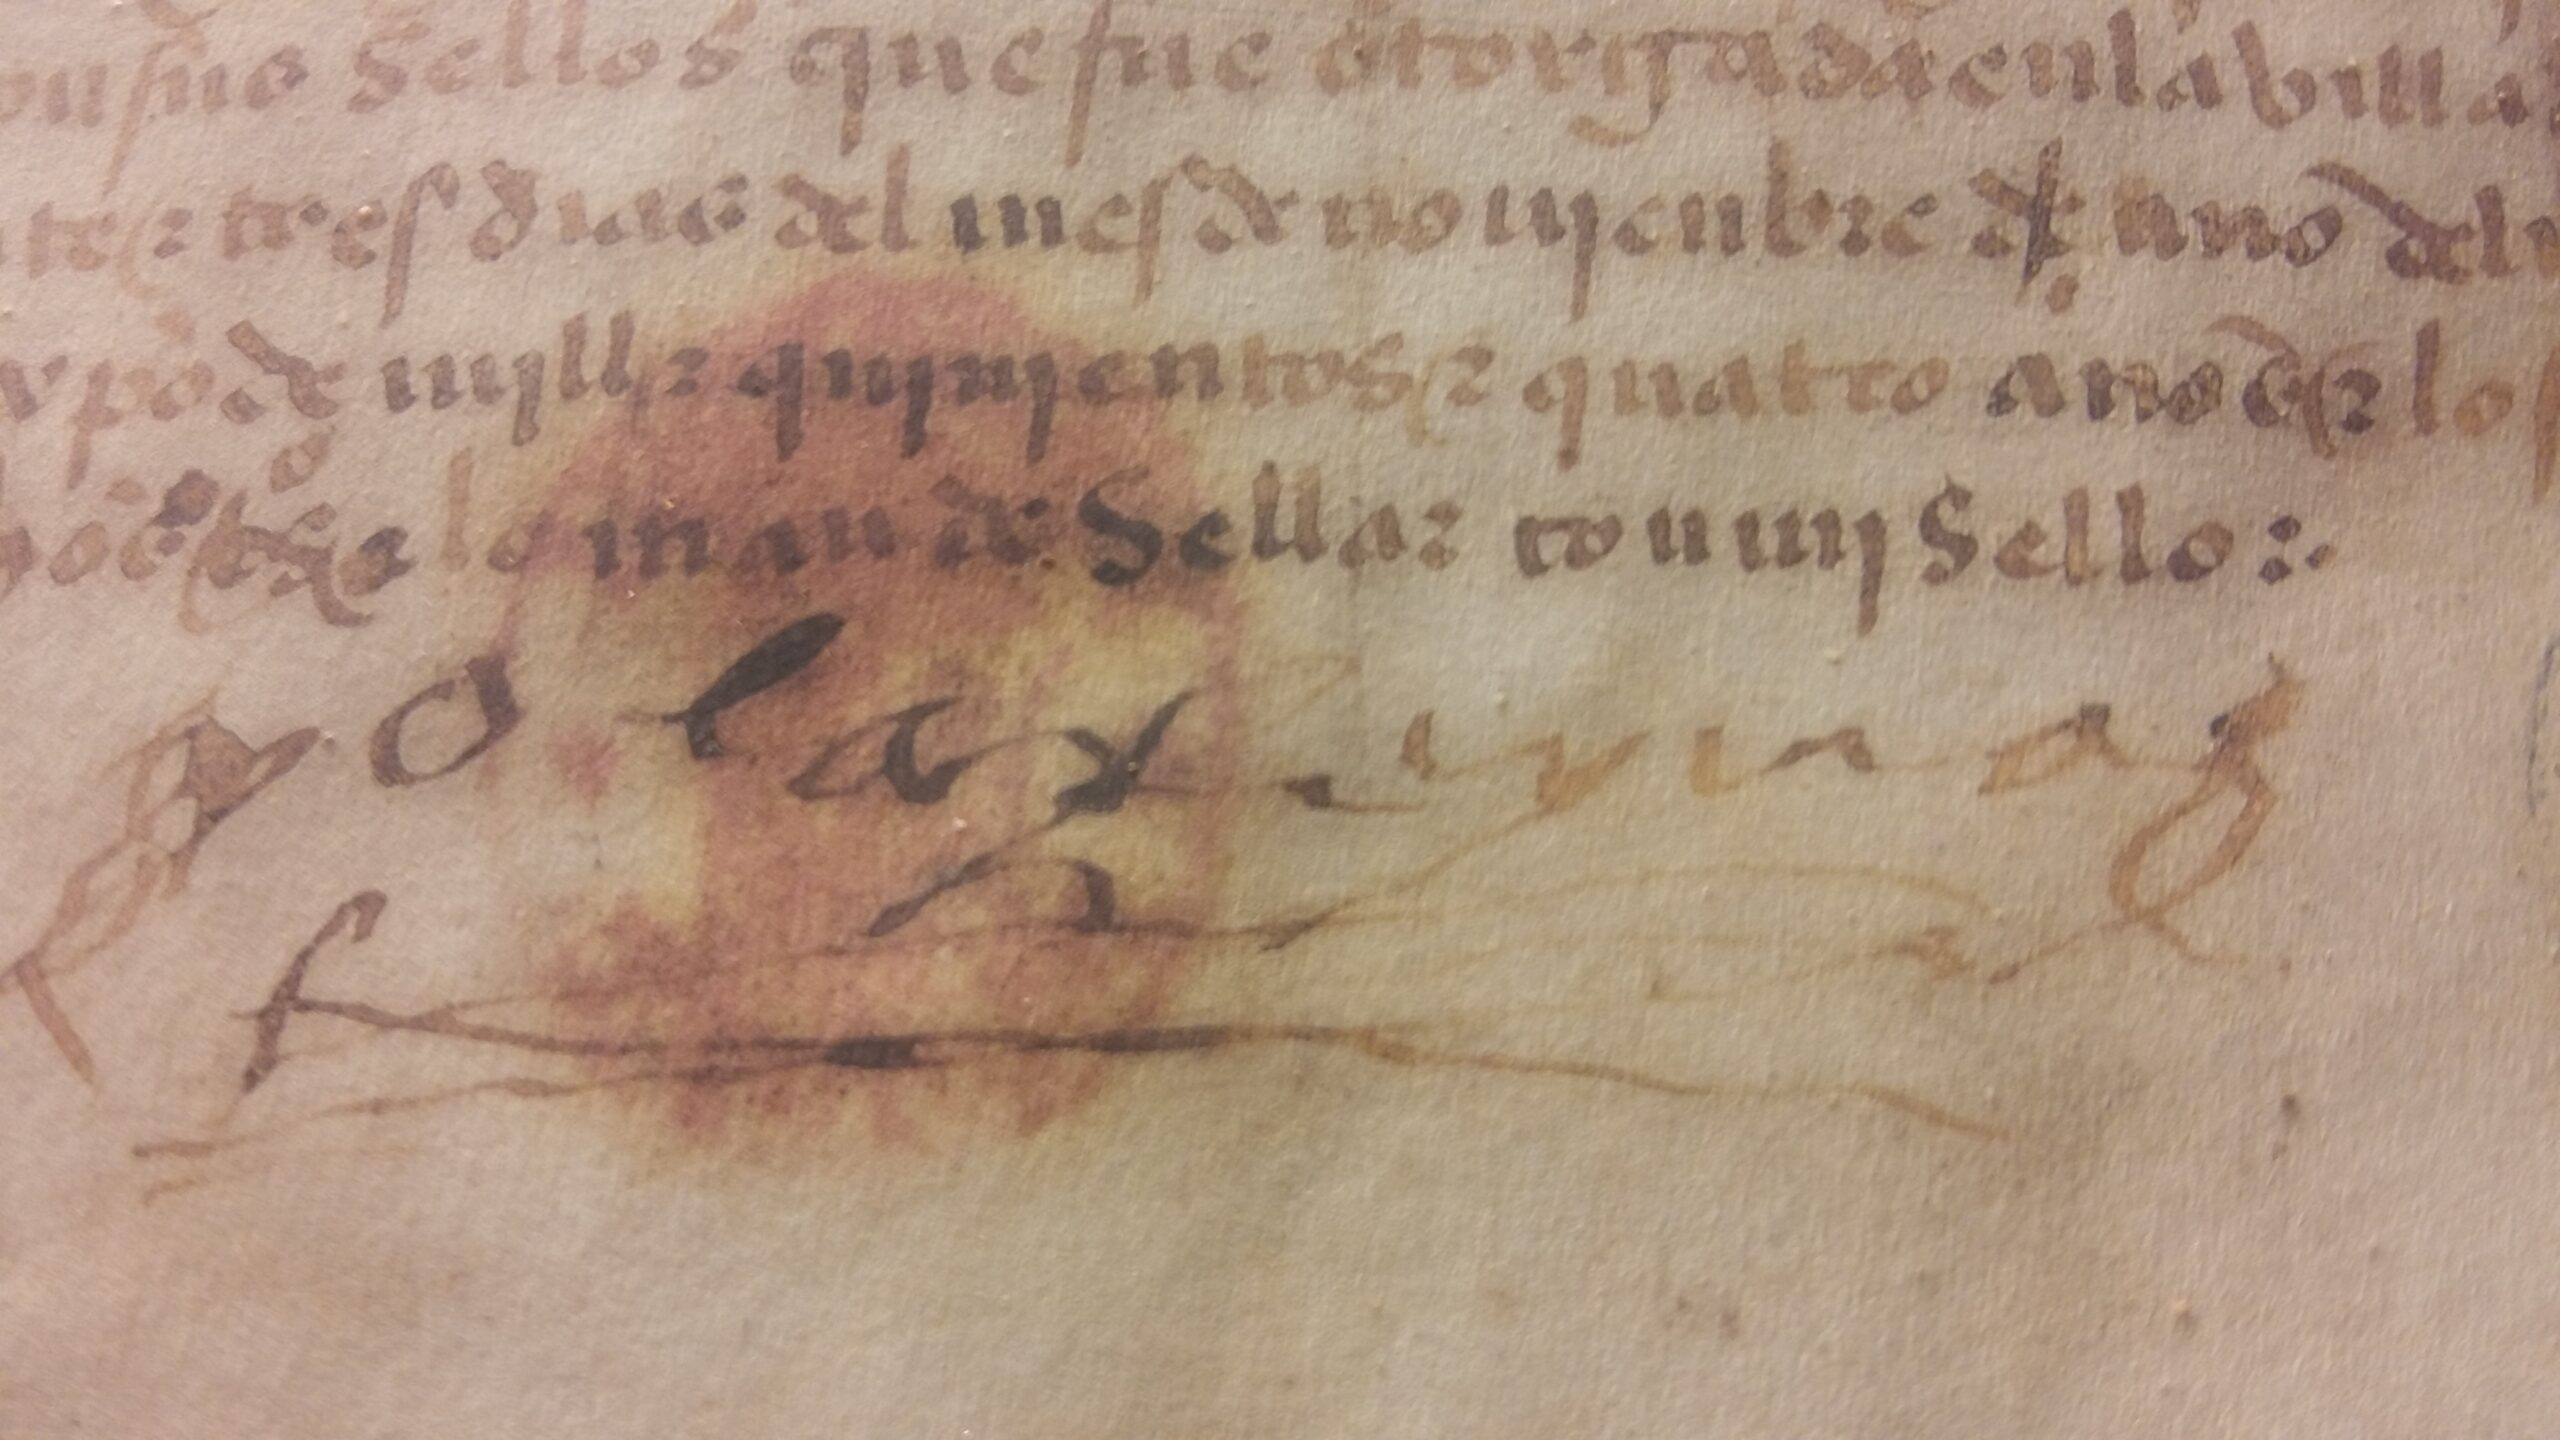 con sus sellos que fue otorgada en la villa
te e tres dias del mes de nouienbre de año del
xpo de mjll e qujnjentos e quatro años e lo
lo mande sellar con mj sello
yo la reyna